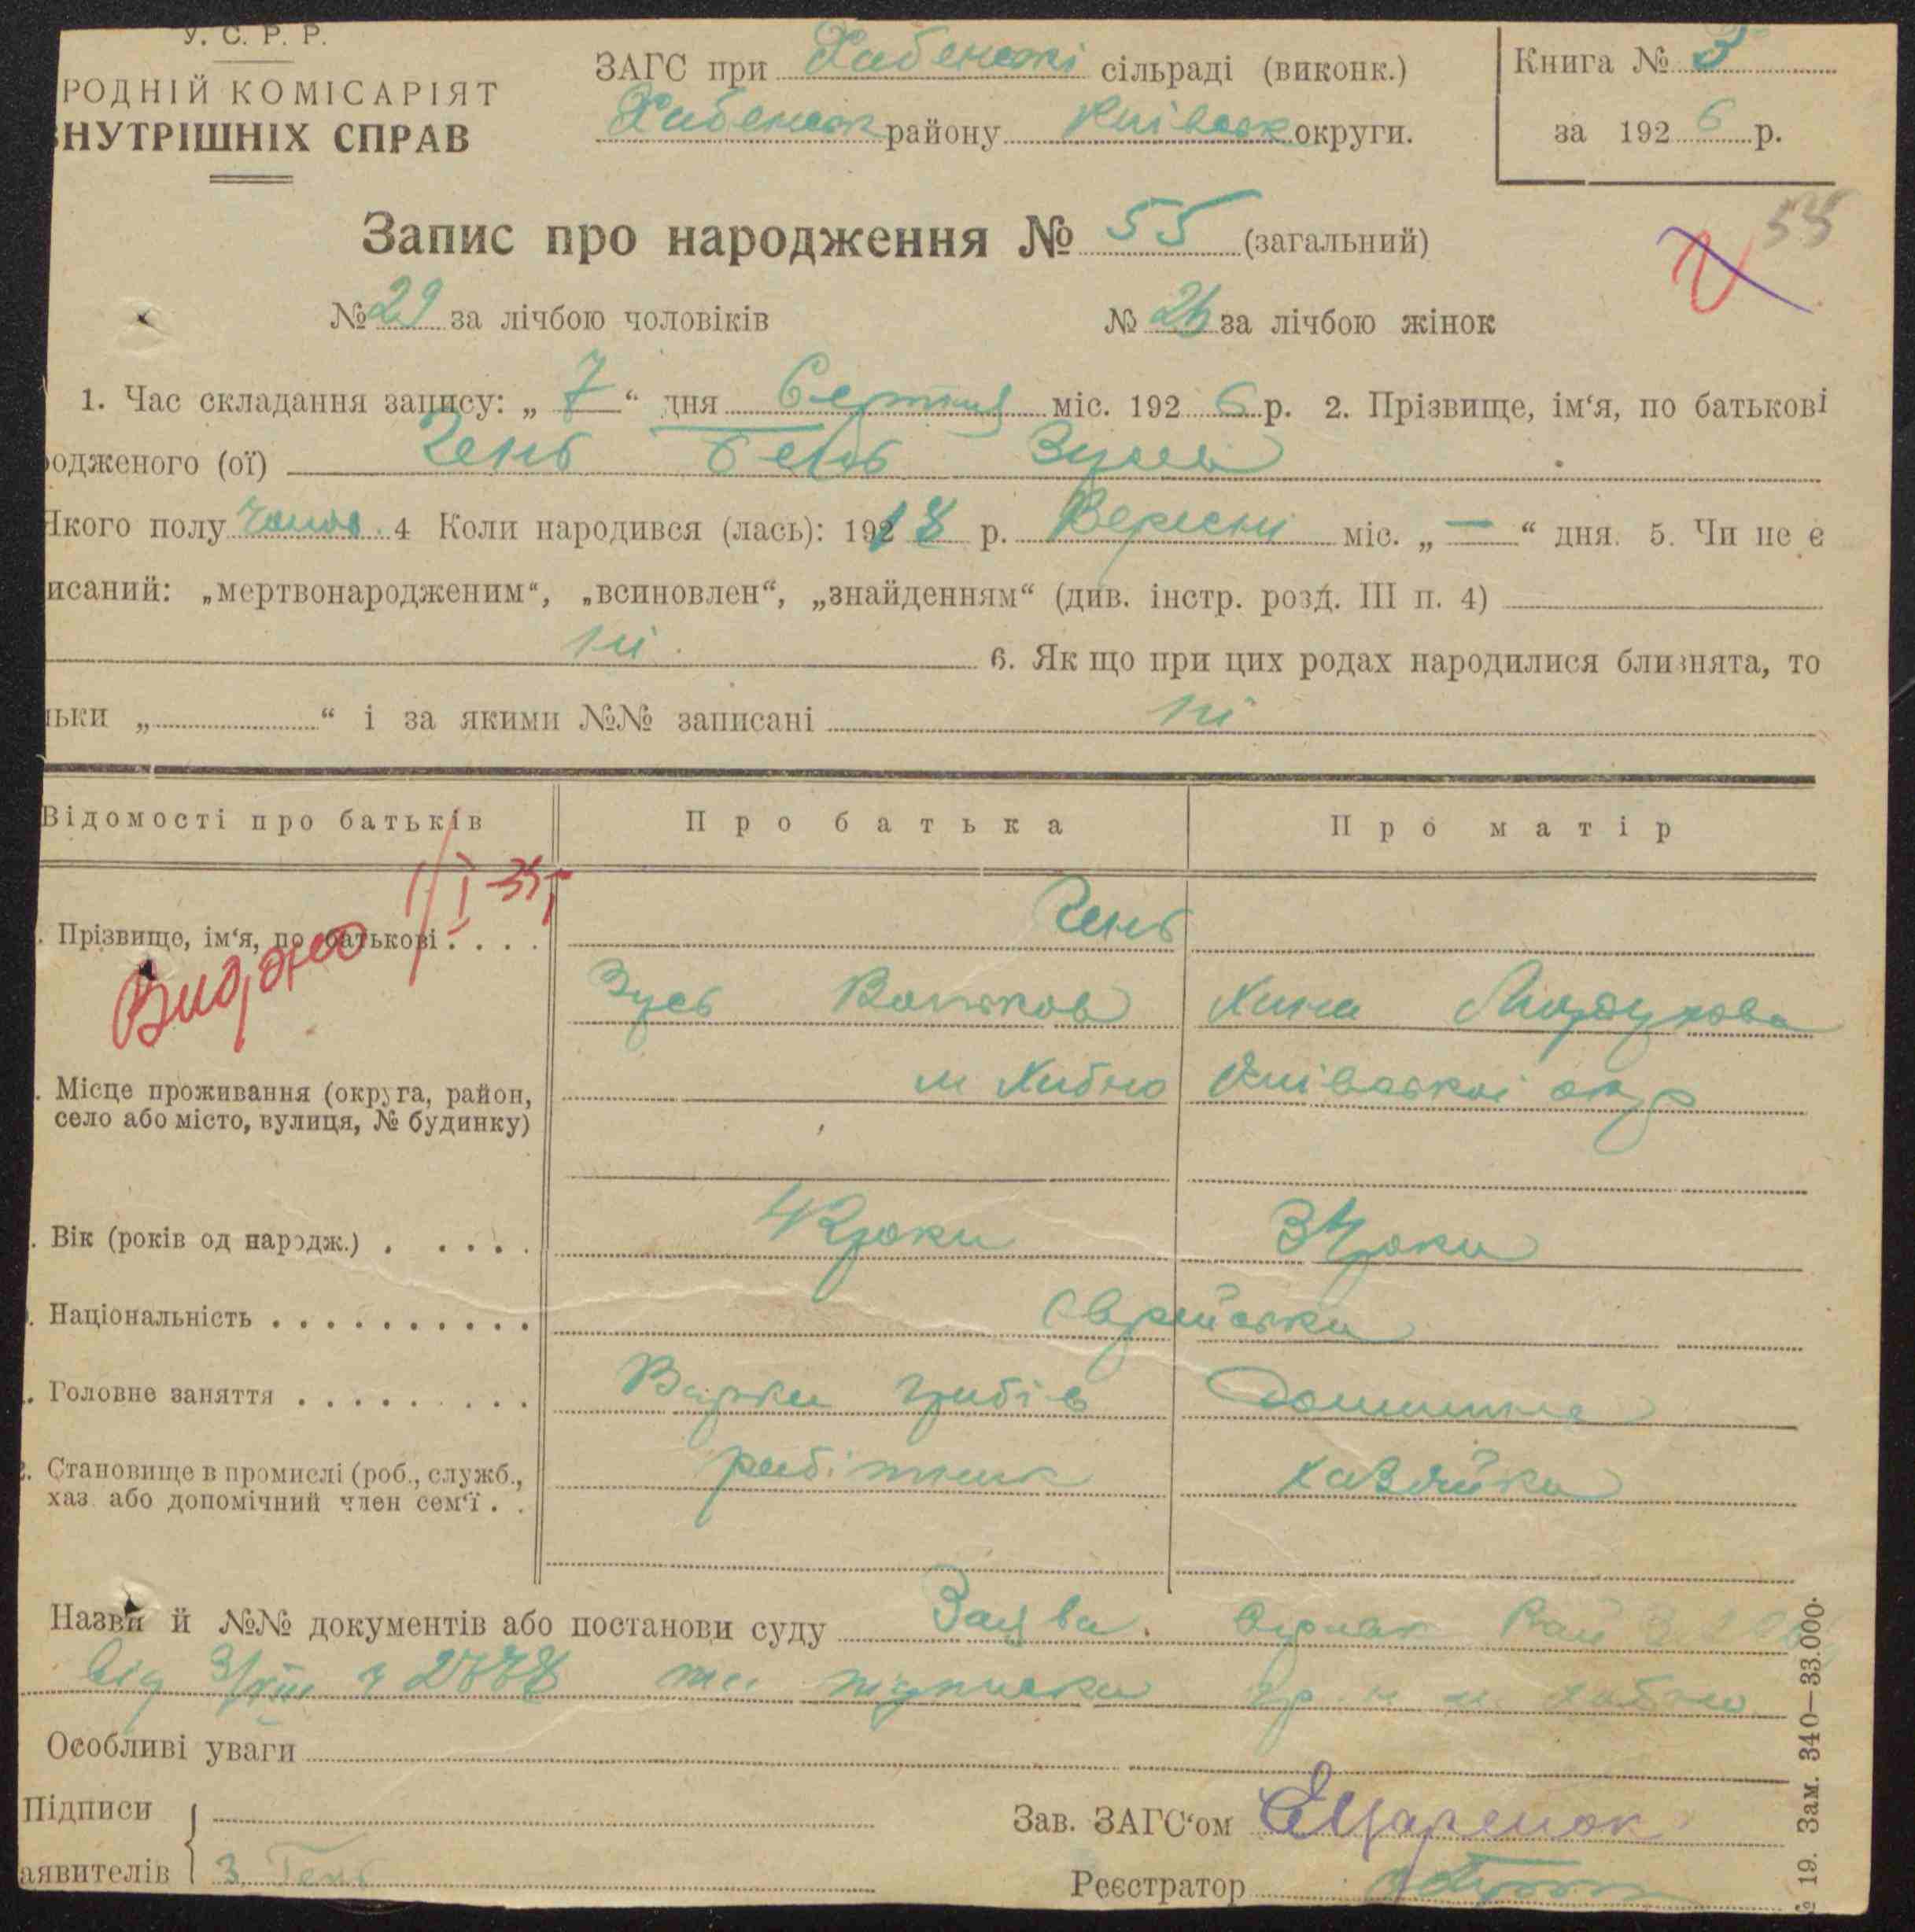 У. С. Р. Р.
РОДНІЙ КОМІСАРІЯТ
ВНУТРІШНІХ СПРАВ
ЗАГС при Хабенській сільраді (виконк.)
Хабенськ району Київськ округи.
Книга № 3
за 1926 р.
Запис про народження № 55 (загальний)
55
№ 29 за лічбою чоловіків № 26 за лічбою жінок
1. Час складання запису: „ 7 “ дня Серпня міс. 1926 р. 2. Прізвище, ім‘я, по батькові
одженого (ої) Гень Зусь
Якого полу чолов. 4 Коли народився (лась): 1918 р. Вересня міс. „ — “ дня. 5. Чи не є
исаний: „мертвонародженим“, „всиновлен“, „знайденням“ (див. інстр. розд. III п. 4)
ні 6. Як що при цих родах народилися близнята, то
льки „ “ і за якими №№ записані ні
Відомості про батьків Про батька Про матір
1/I-35
. Прізвище, ім‘я, по батькові . . . . Гень
Видано
Зусь Вольков Хина
. Місце проживання (округа, район, м Хабно Київської окр
село або місто, вулиця, № будинку)
. Вік (років од народж.) . . . . . 42 роки 34 роки
. Національність . . . . . . . . . . Єврейська
. Головне заняття . . . . . . . . . Варка грибів Домашнє
. Становище в промислі (роб., служб., робітник хазяйка
хаз. або допомічний член сем‘ї . .
Назви й №№ документів або постанови суду Заява.
від 3/VIII ч та підписка гр. м. Хабно
Особливі уваги
Підписи
аявителів З Гень
Зав. ЗАГС‘ом
Реєстратор
№ 19. Зам. 340—33.000.